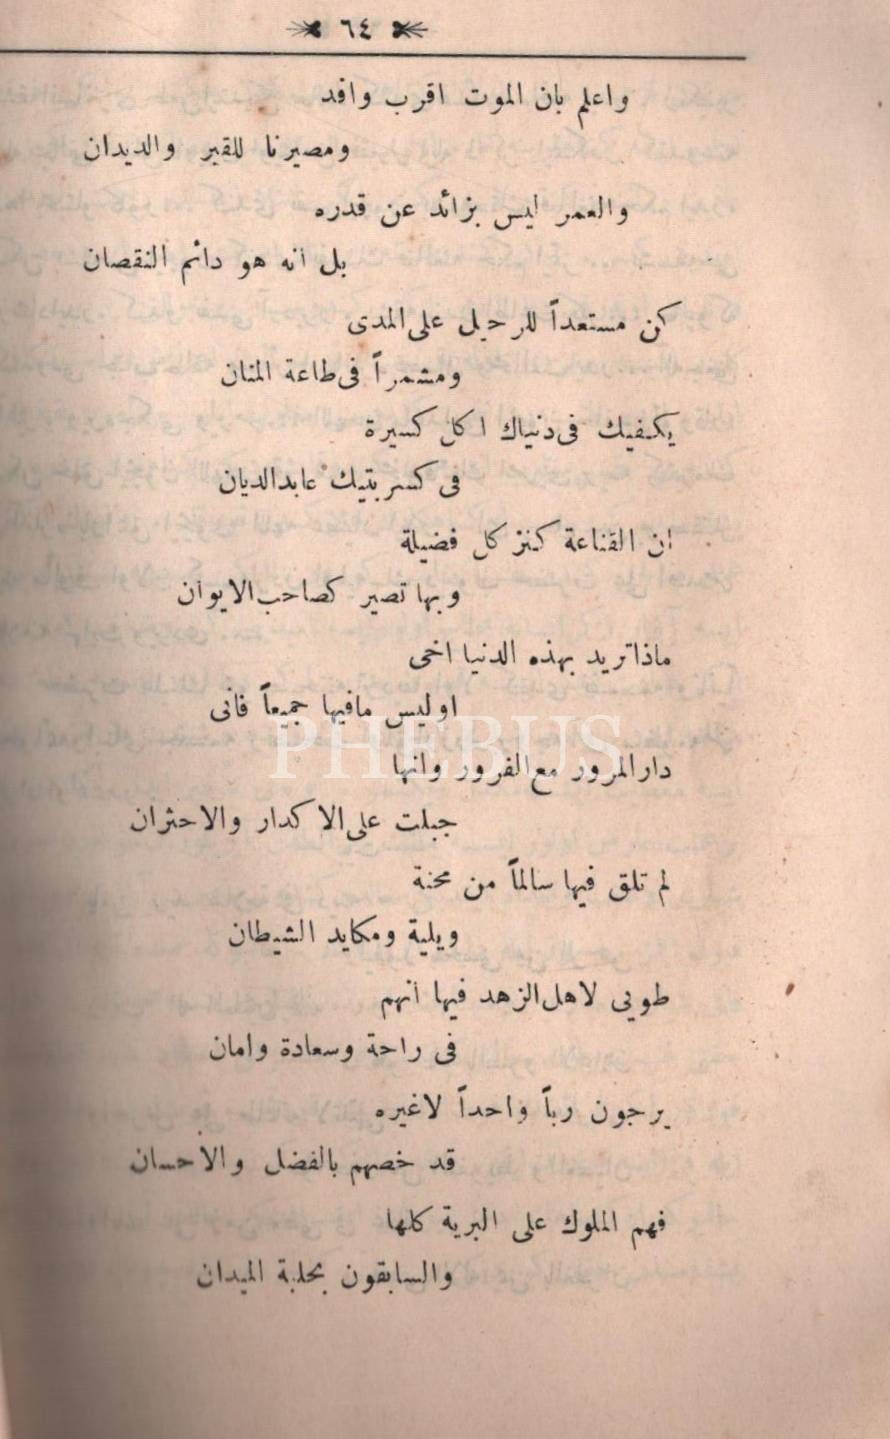 ٦٤
واعلم بان الموت اقرب وافد
ومصيرنا للقبر والديدان
والعمر ليس بزائد عن قدره
بل انه هو دائم النقصان
كن مستعداً للرحيل على المدى
ومشمراً فى طاعة المنان
يكفيك فى دنياك اكل كسيرة
فى كسر بتيك عابد الديان
ان القناعة كنز كل فضيلة
وبها تصير كصاحب الايوان
ماذا تريد بهذه الدنيا اخى
اوليس مافيها جميعاً فانى
PHEBUS
دار المرور مع الغرور وانها
جبلت على الاكدار والاحثران
لم تلق فيها سالماً من محنة
وبلية ومكايد الشيطان
طوبى لاهل الزهد فيها انهم
فى راحة وسعادة وامان
يرجون رباً واحداً لاغيره
قد خصهم بالفضل والاحسان
فهم الملوك على البرية كلها
والسابقون بحلبة الميدان